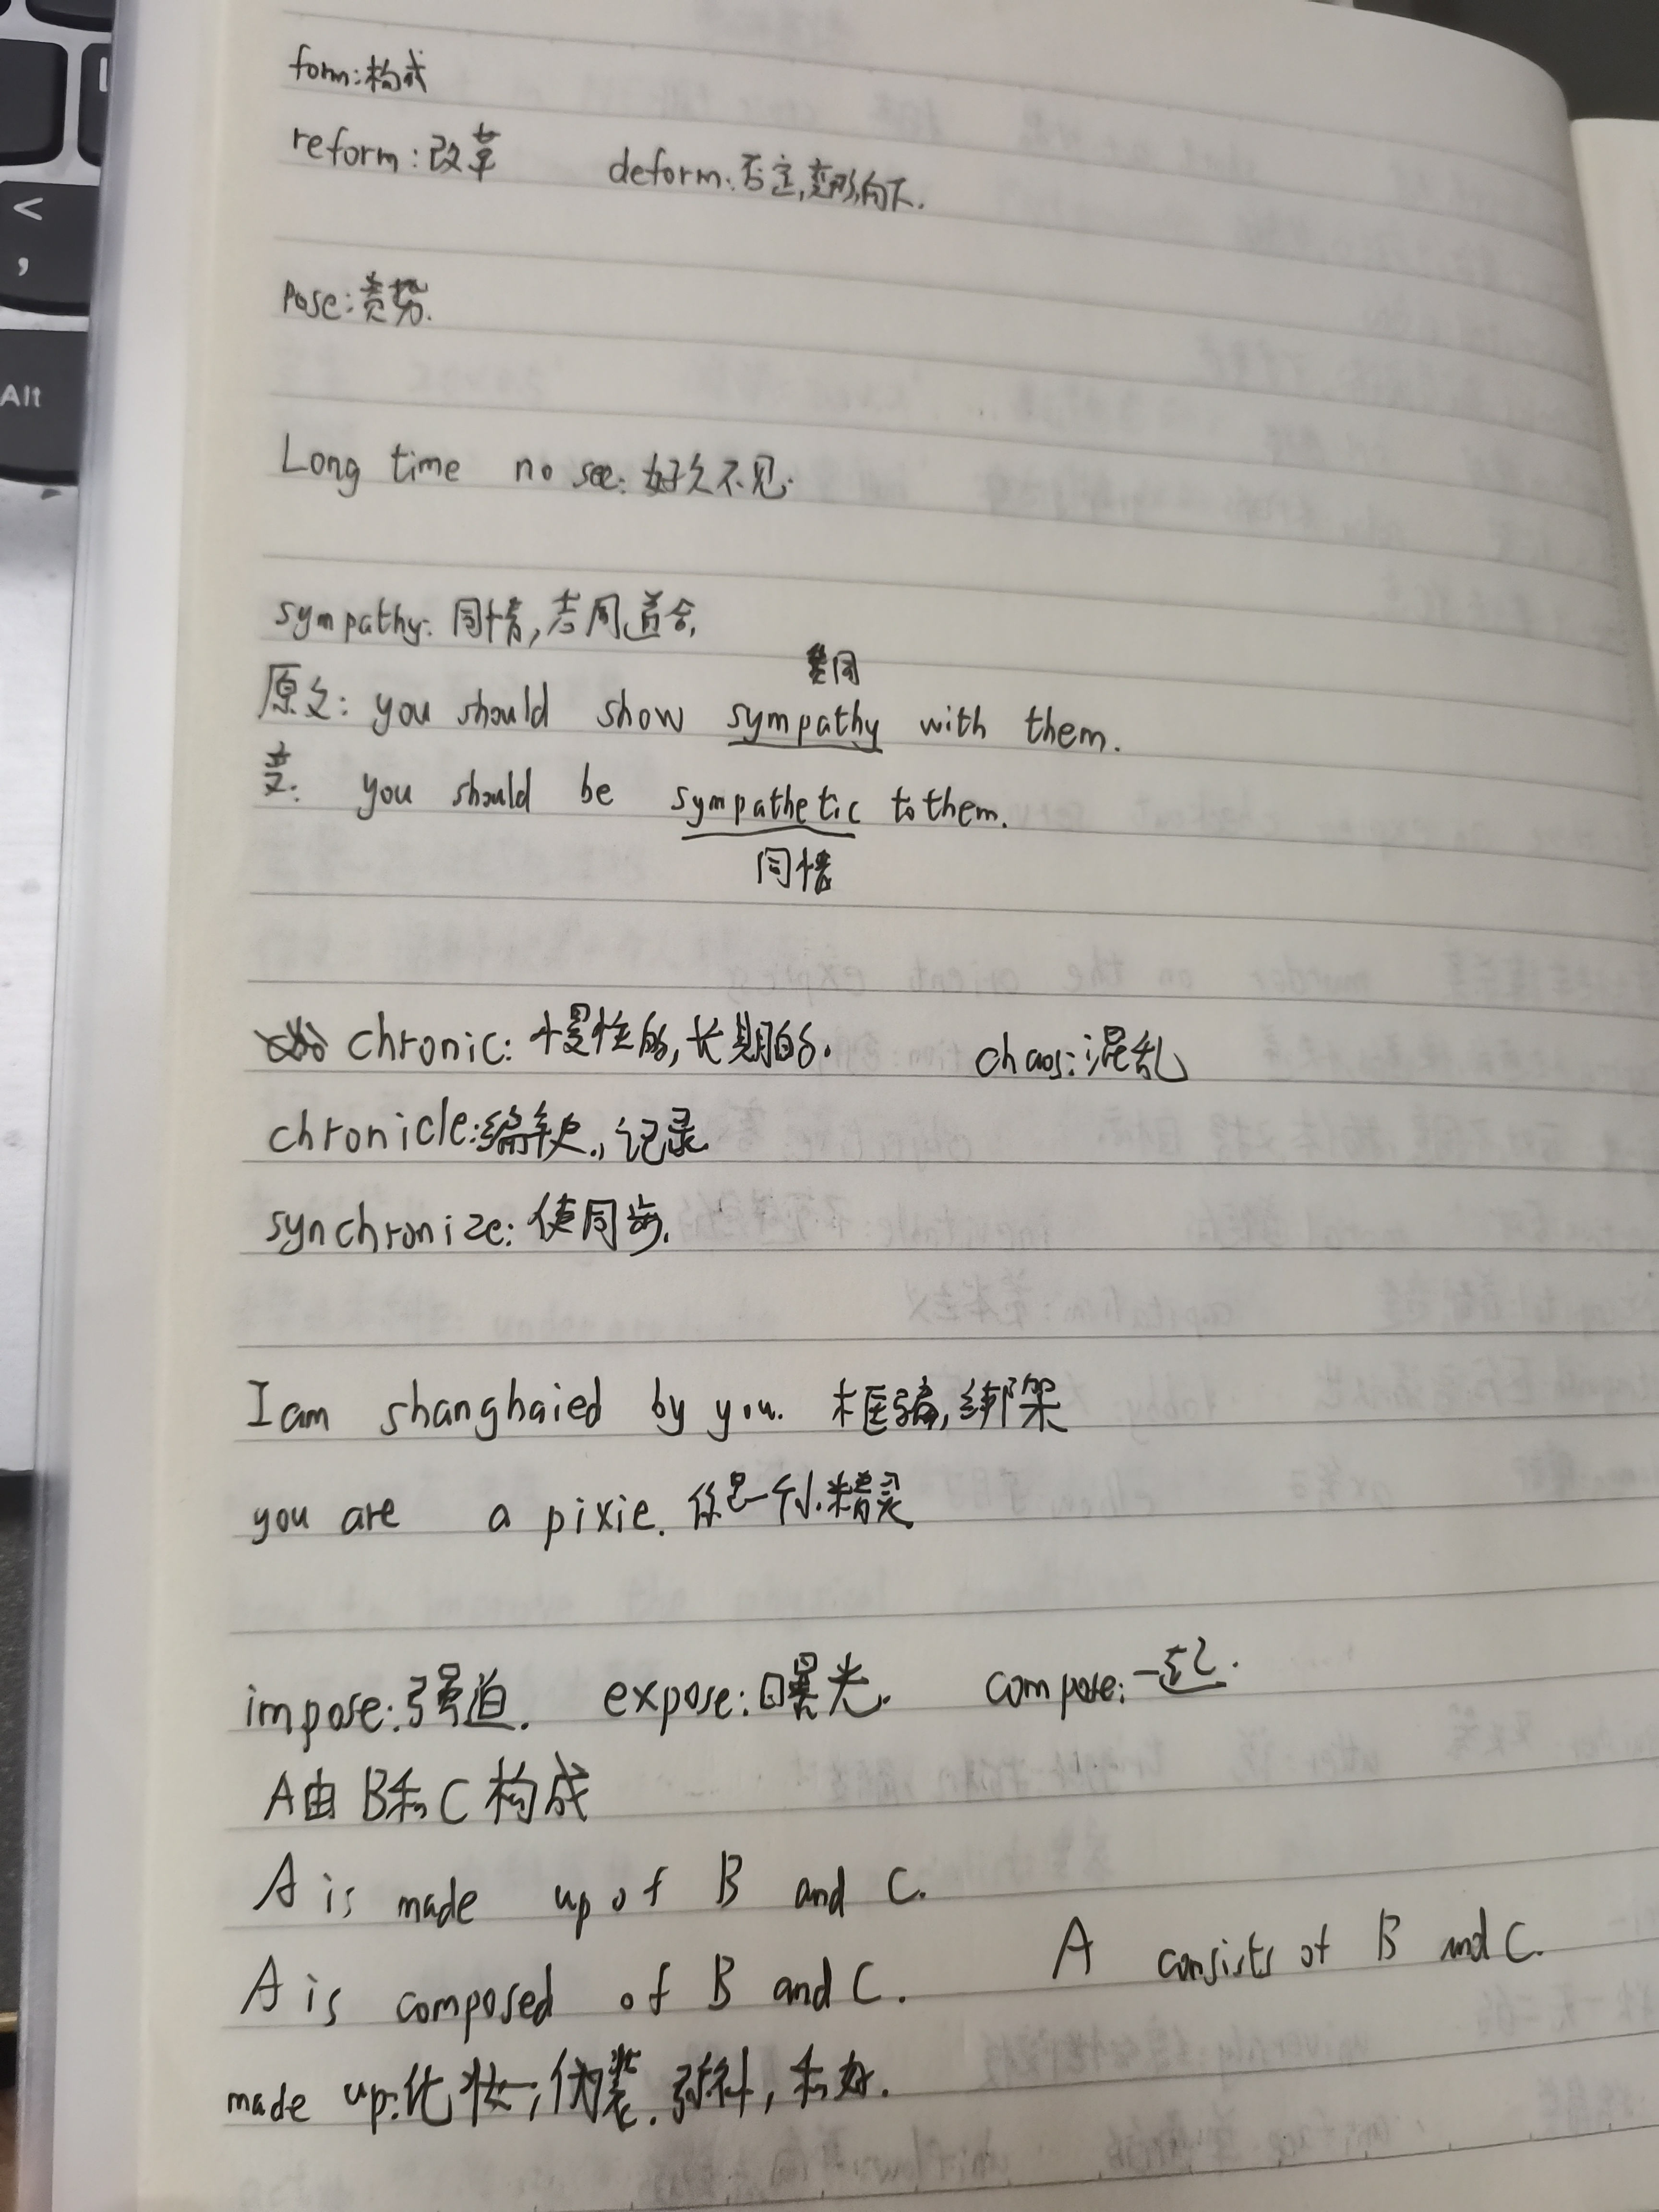 form:构成
reform:改革 deform:否定,变形,向下.
Pose:姿势.
Long time no see:好久不见.
sympathy:同情,志同道合,
赞同
原文: you should show sympathy with them.
you should be sympathetic to them.
同情
chronic:慢性的,长期的. chaos:混乱
chronicle:编年史,记录
synchronize:使同步.
I am shanghaied by you. 框骗,绑架
you are a pixie. 你是一个小精灵
impose:强迫. expose:曝光. compose:一起.
A由B和C构成
A is made up of B and C.
A is composed of B and C. A consists of B and C.
made up:化妆,伪装.弥补,和好.
Alt
<
,